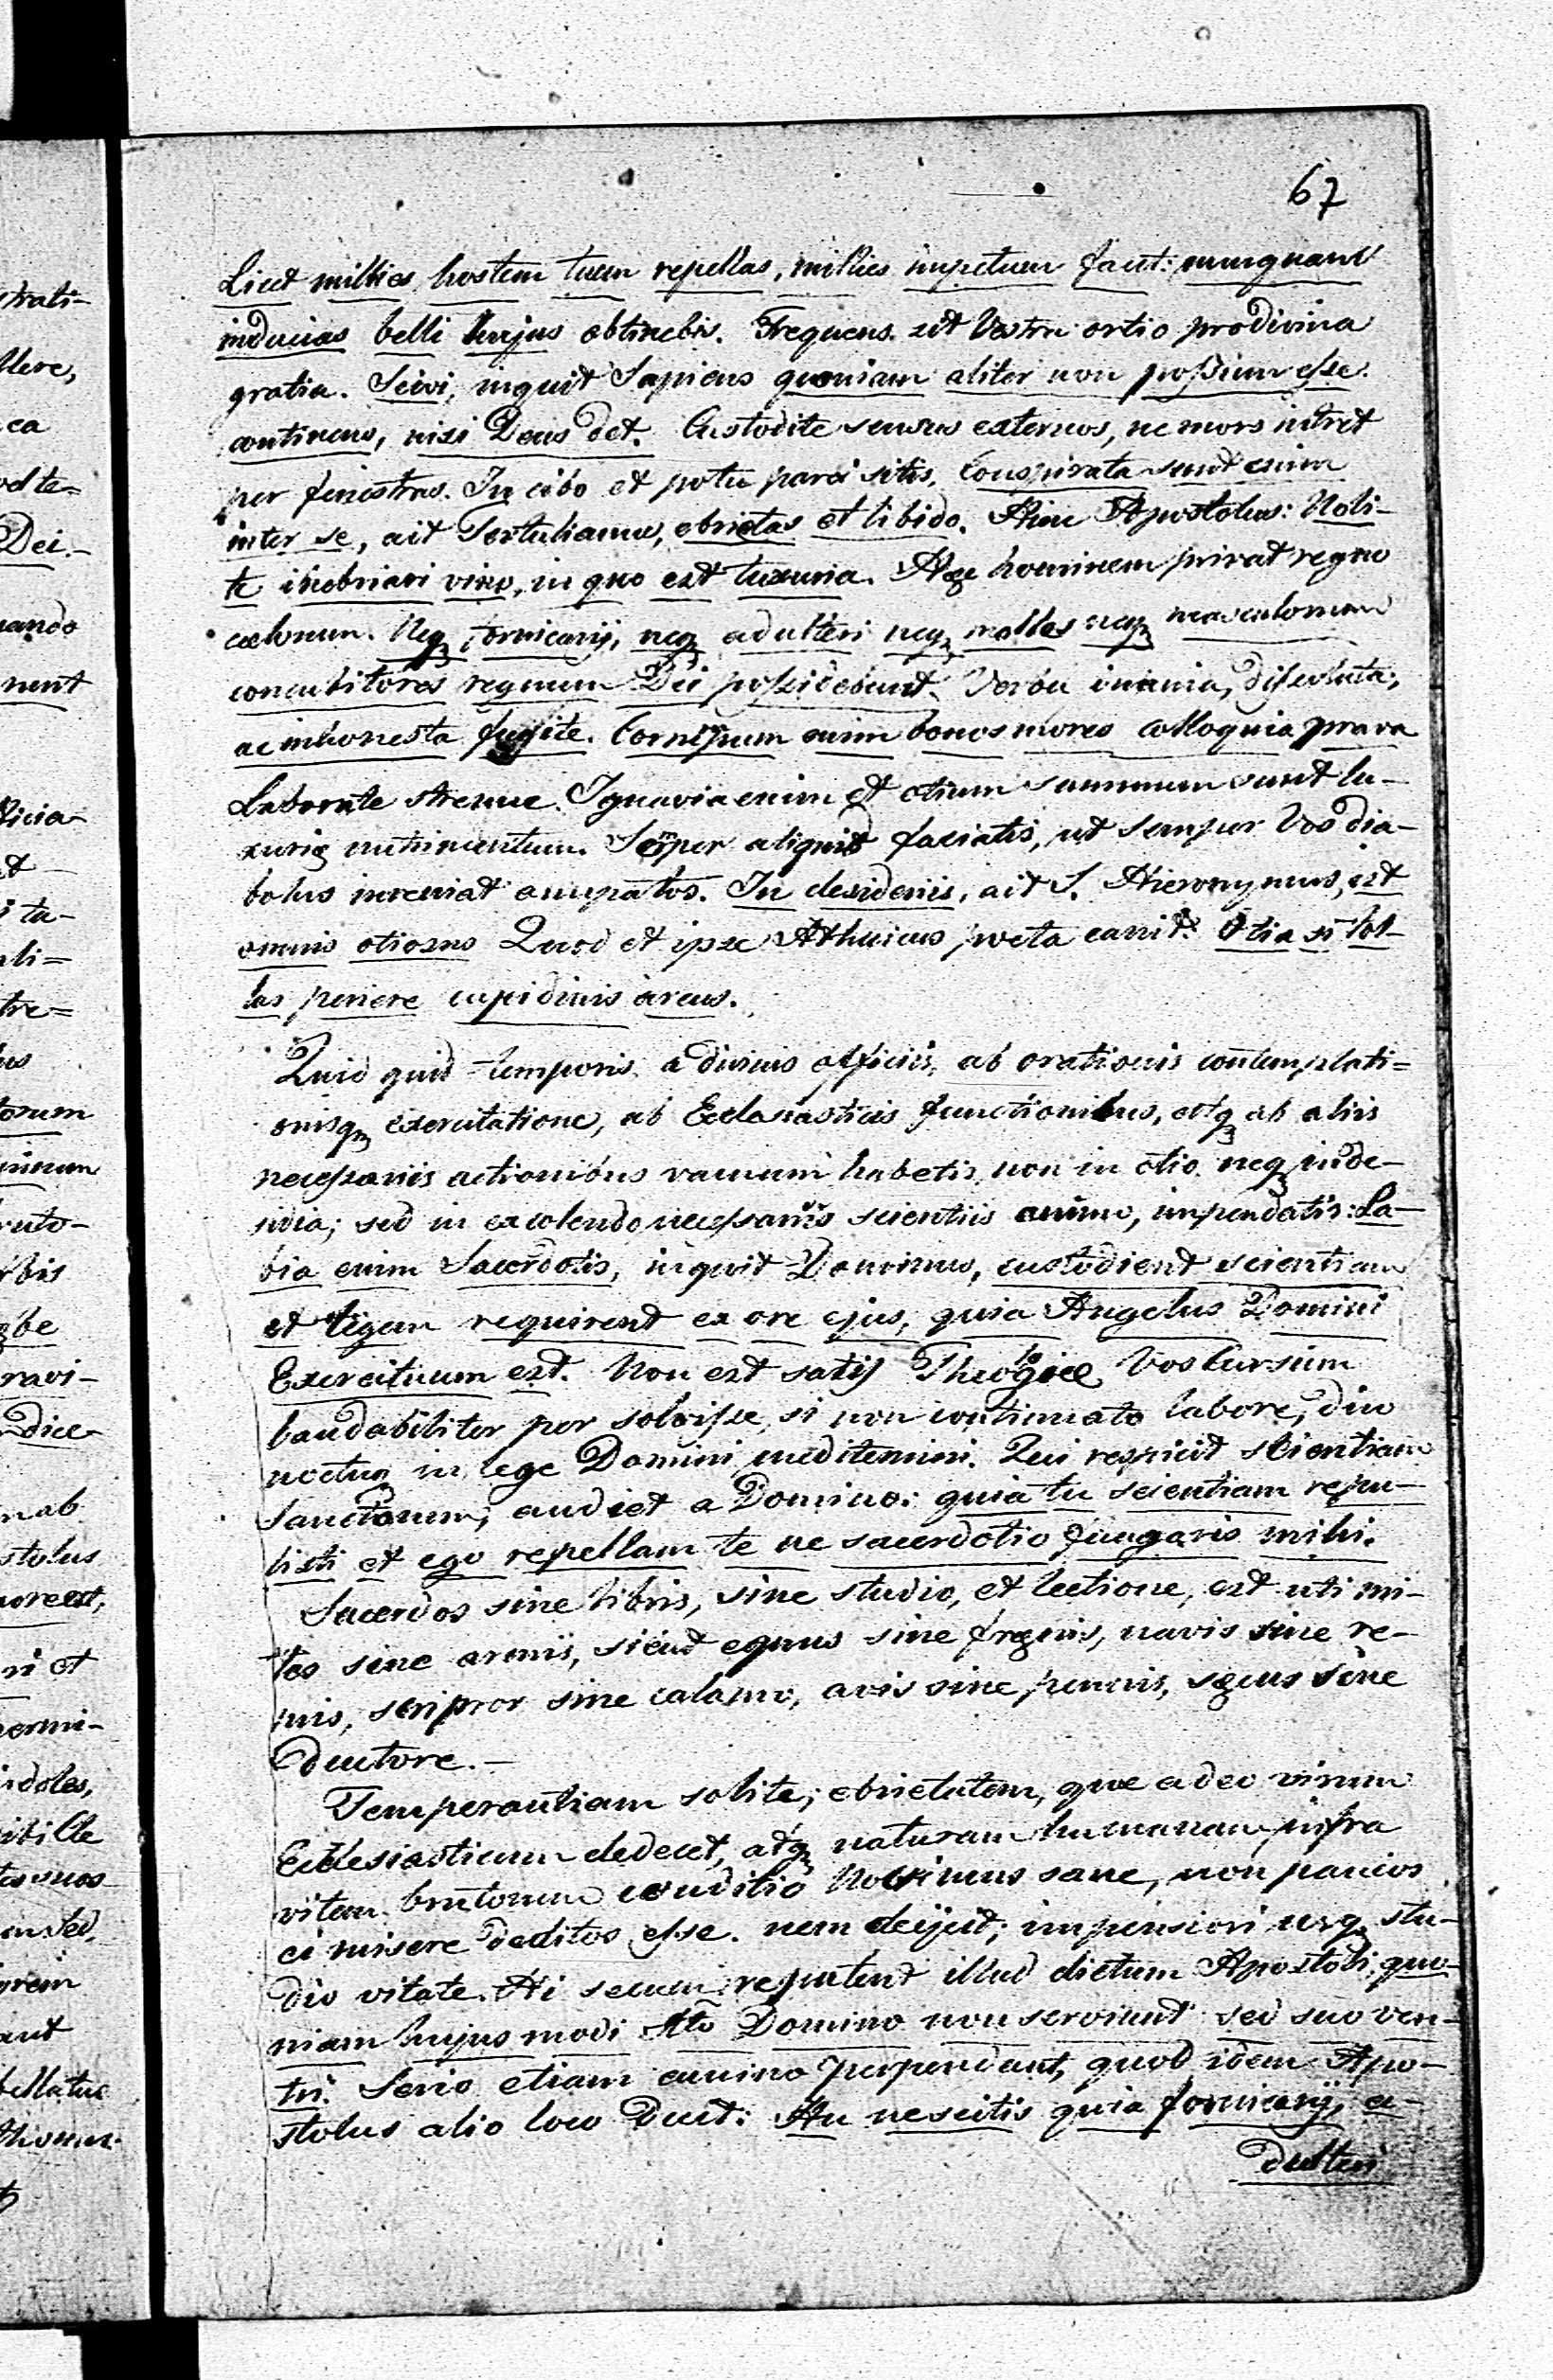 67
Licet millies hostem tuum repellas, millies impetum faciet: nunquam
inducias belli hujus obtinebis. Frequens sit Vestra oratio pro divina
gratia. Scivi, inquit Sapiens quoniam aliter non possum esse
continens, nisi Deus det. Custodite sensus externos, ne mors intret
per fenestras. In cibo et potu parci sitis. Conspirata sunt enim
inter se, ait Tertulianus, ebrietas et libido. Hinc Apostolus: Noli-
te inebriari vino, in quo est luxuria. Hæc hominem privat regno
cœlorum. Neq fornicarij, neq adulteri neq molles neq masculorum
concubitores regnum Dei possidebunt. Verba inania, dissoluta,
ac inhonesta fugite. Corrumpunt enim bonos mores colloquia prava
Laborate strenue. Ignavia enim et otium summum sunt lu-
xuriæ nutrimentum. Semper aliquid faciatis, ut semper Vos dia-
bolus inveniat occupatos. In desideriis, ait S. Hieronymus, est
omnis otiosus Quod et ipse Ethnicus poeta canit: Otia si tol-
las periere cupidinis arcus.
Quid quid temporis a divinis officiis, ab orationis contemplati=
onisq exercitatione, ab Ecclesiasticis functionibus, atq ab aliis
necessariis actionibus vacuum habetis, non in otio neq in de-
sidia; sed in excolendo necessariis scientiis animo, impendatis: La-
bia enim Sacerdotis, inquit Dominus, custodient scientiam
et legem requirent ex ore ejus, quia Angelus Domini
Exercituum est. Non est satis Theologiæ Vos Cursum
laudabiliter persolvisse, si non continuato labore, diu
noctuq in lege Domini meditemini. Qui respicit scientiam
Sanctorum; audiet a Domino: quia tu scientiam repu-
listi et ego repellam te ne sacerdotio fungaris mihi.
Sacerdos sine libris, sine studio, et lectione, est uti mi-
les sine armis, sicut equus sine frænis, navis sine re-
mis, scriptor sine calamo, avis sine pennis, sæcus sine
ductore.-
Temperantiam colite; ebrietatem, quæ adeo virum
Ecclesiasticum dedecet, atq naturam humanam infra
vitam brutorum conditio Novimus sane, non paucos
ei misere deditos esse. nem dejicit; impensiori usq stu-
dio vitate. Hi secum reputent illud dictum Apostoli, quo-
niam hujus modi Xto Domino non serviunt sed suo ven-
tri. Serio etiam animo perpendant, quod idem Apo-
stolus alio loco Ducit: An nescitis quia fornicarij, a-
dulteri